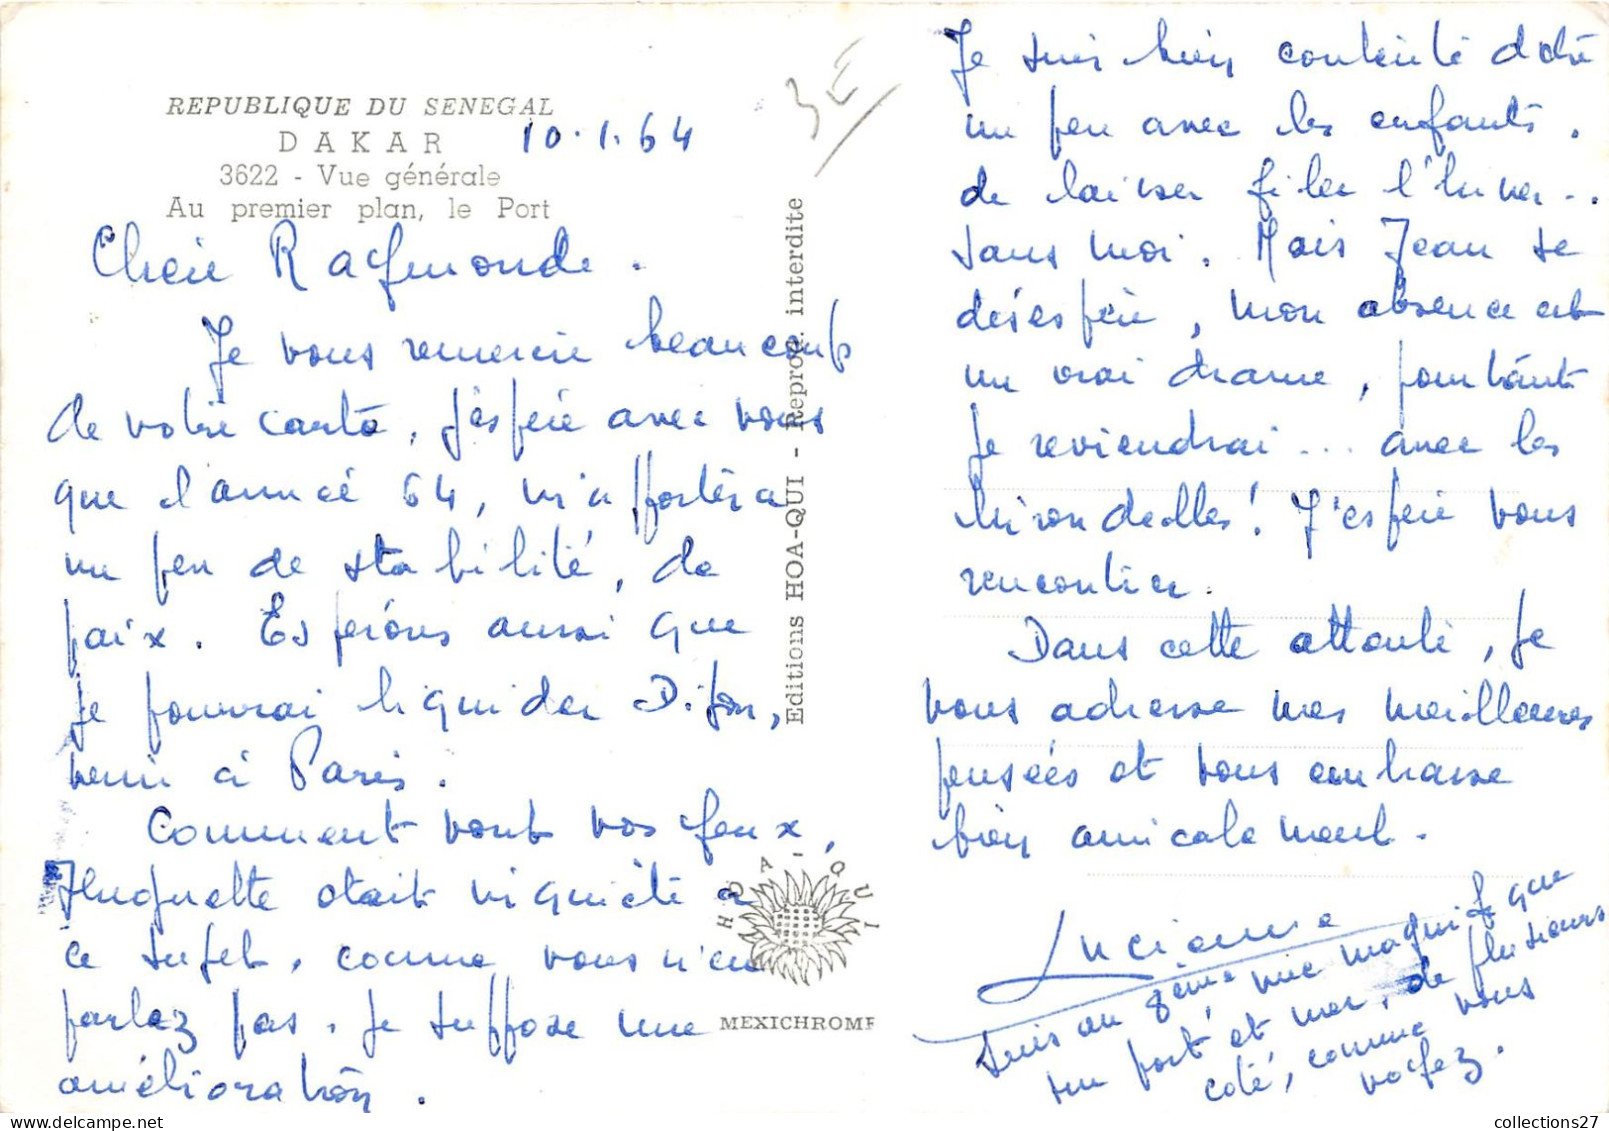 REPUBLIQUE DU SENEGAL
DAKAR
10.1.64
3622 - Vue générale
Au premier plan, le Port
Chère Raymonde.
Je vous remercie beaucoup
de votre carte, j'espère avec vous
que l'année 64, m'apportera
un peu de stabilité, de
paix. Espérons aussi que
je pourrai liquider Dijon,
venir à Paris.
Comment vont vos yeux,
Huguette était inquiète à
ce sujet, comme vous n'en
parlez pas, je suppose une
amélioration.
Editions HOA-QUI - Reprod. interdite
HOA-QUI
MEXICHROME
3E
Je suis bien contente d'être
un peu avec les enfants.
de laisser filer l'hiver...
sans moi. Mais Jean se
désespère, mon absence est
un vrai drame, pourtant
je reviendrai... avec les
hirondelles! J'espère vous
rencontrer.
Dans cette attente, je
vous adresse mes meilleures
pensées et vous embrasse
bien amicalement.
Lucienne
Suis au 8ème, vue magnifique
sur port et mer, de plusieurs
côté, comme vous
voyez.
collections27